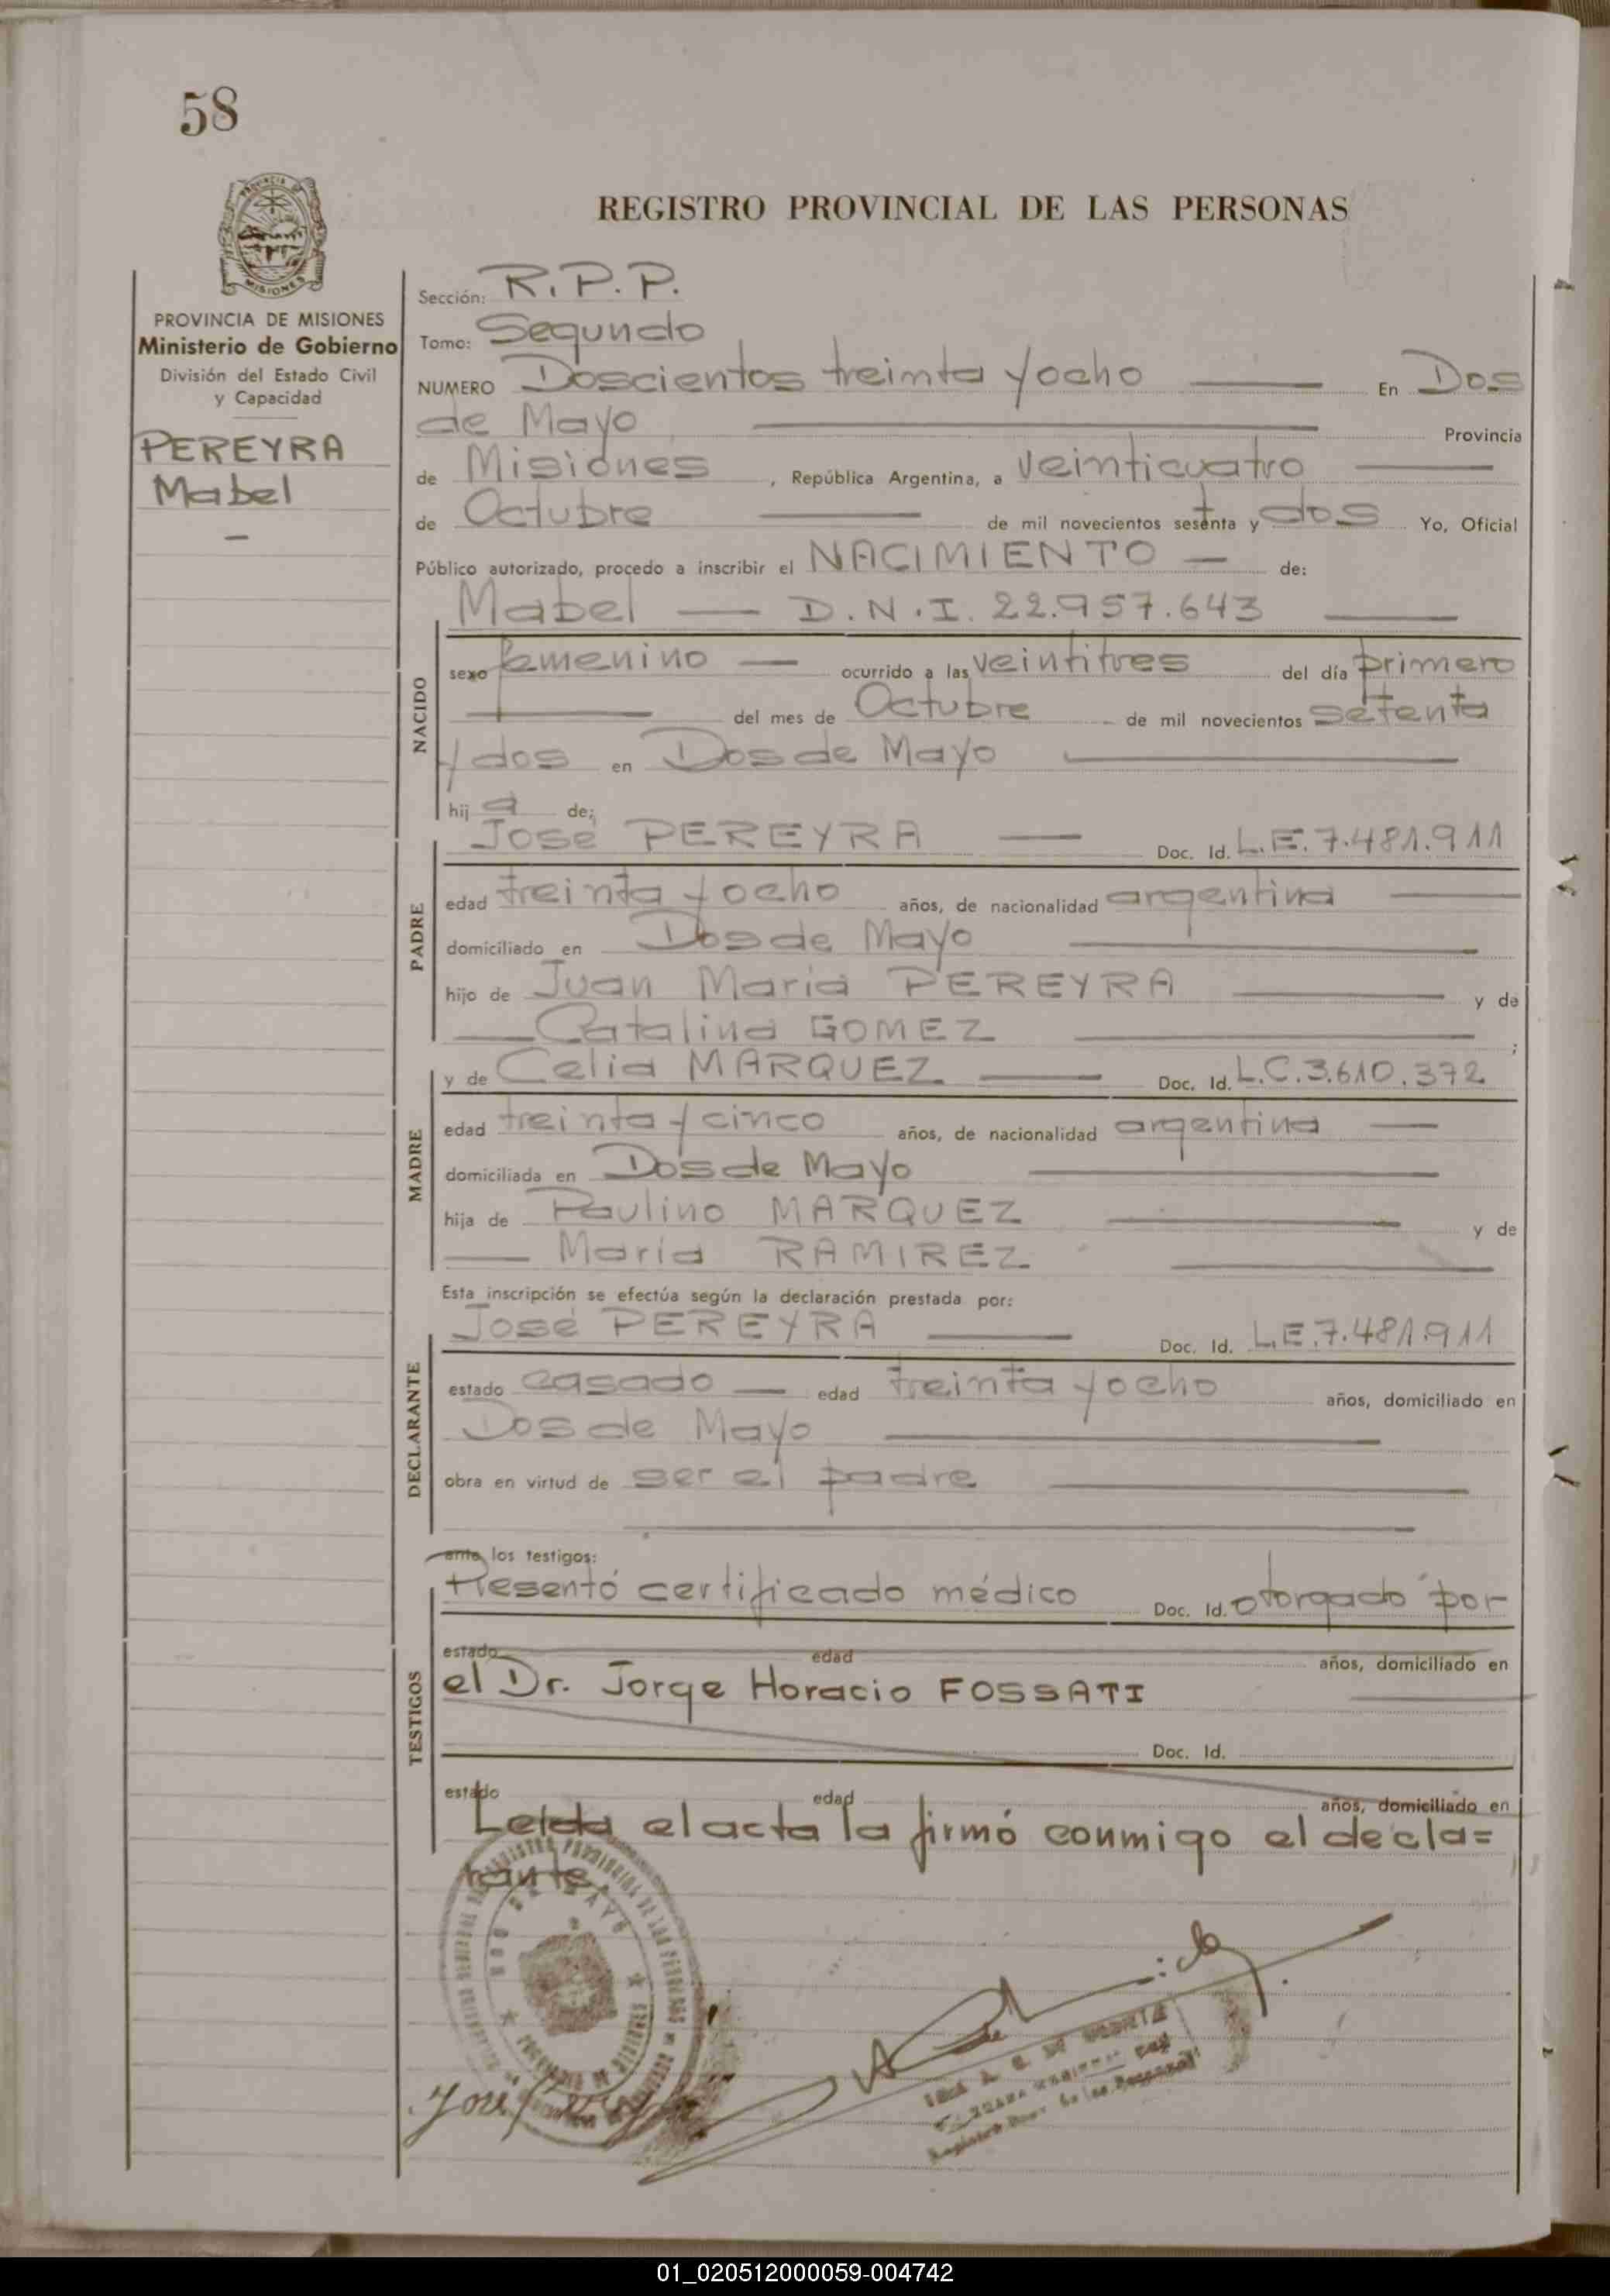 58
REGISTRO PROVINCIAL DE LAS PERSONAS
PROVINCIA DE MISIONES
Ministerio de Gobierno
División del Estado Civil
y Capacidad
PEREYRA
Mabel
Sección: R.P.P.
Tomo: Segundo
NUMERO Doscientos treinta y ocho En Dos
de Mayo Provincia
de Misiones, República Argentina, a veinticuatro
de Octubre de mil novecientos sesenta y dos Yo, Oficial
Público autorizado, procedo a inscribir el NACIMIENTO de:
Mabel — D.N.I. 22.957.643
NACIDO
sexo femenino — ocurrido a las veintitres del día primero
del mes de Octubre de mil novecientos setenta
y dos en Dos de Mayo
hij a de:
José PEREYRA — Doc. Id. L.E. 7.481.911
PADRE
edad treinta y ocho años, de nacionalidad argentina
domiciliado en Dos de Mayo
hijo de Juan Maria PEREYRA y de
Catalina GOMEZ ;
y de Celia MARQUEZ — Doc. Id. L.C. 3.610.372
MADRE
edad treinta y cinco años, de nacionalidad argentina
domiciliada en Dos de Mayo
hija de Paulino MARQUEZ y de
María RAMIREZ
Esta inscripción se efectúa según la declaración prestada por:
José PEREYRA — Doc. Id. L.E. 7.481.911
DECLARANTE
estado casado — edad treinta y ocho años, domiciliado en
Dos de Mayo
obra en virtud de ser el padre
ante los testigos:
Presentó certificado médico Doc. Id. otorgado por
TESTIGOS
estado edad años, domiciliado en
el Dr. Jorge Horacio FOSSATI
Doc. Id.
estado edad años, domiciliado en
Leida el acta la firmó conmigo el decla=
rante.
José
01_020512000059-004742